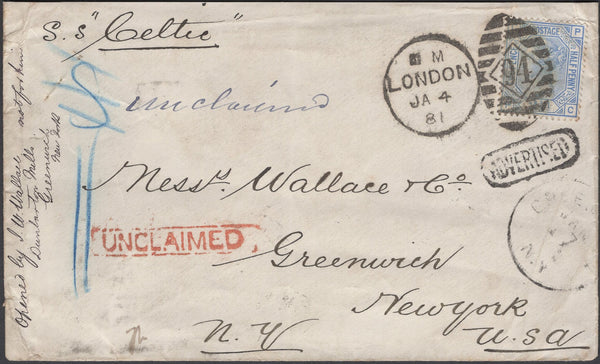 S.S "Celtic"
LONDON
M
JA 4
81
94
POSTAGE
HALF PENNY
P
Unclaimed
ADVERTISED
Messrs. Wallace & Co
UNCLAIMED
Greenwich
New York
N.Y
U.S.A
Opened by J. W Wallace not for him
Dunbarton Mills
Greenwich
New York